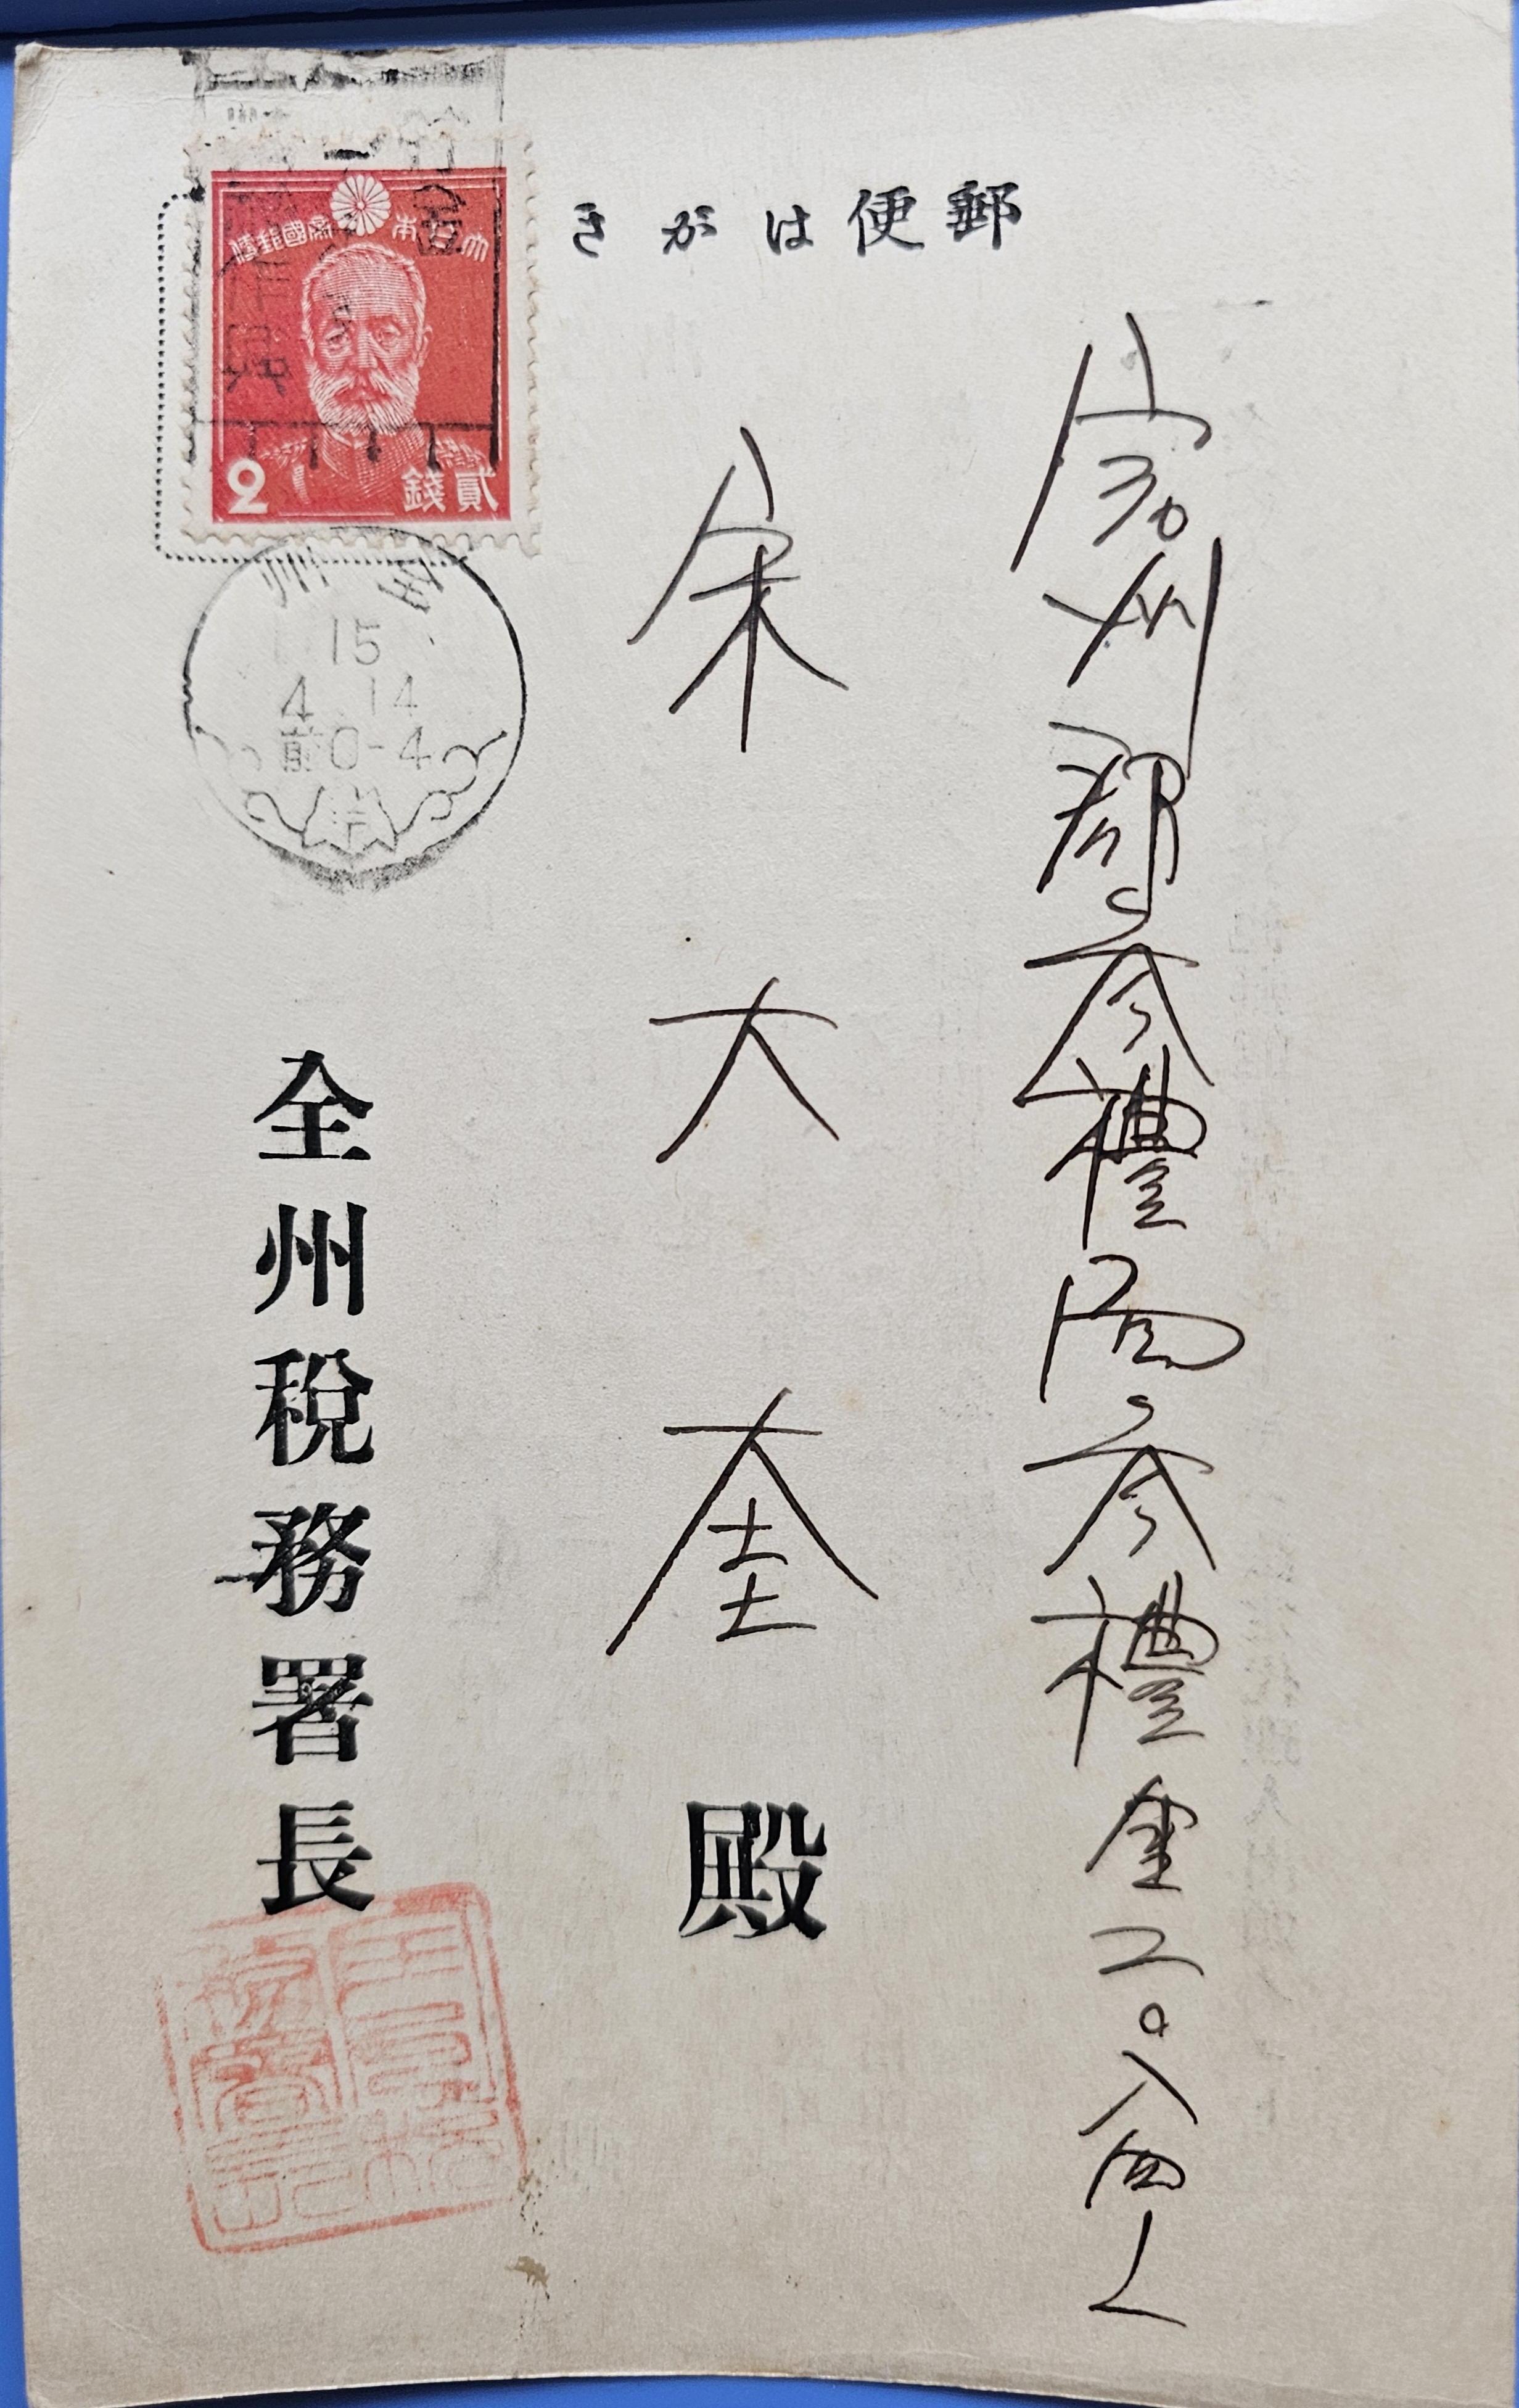 郵便はがき
完州郡參禮面參禮里二〇八四
宋大奎
殿
大日本帝國郵便
2 貳錢
全州
15
4.14
前0-4
全州稅務署長